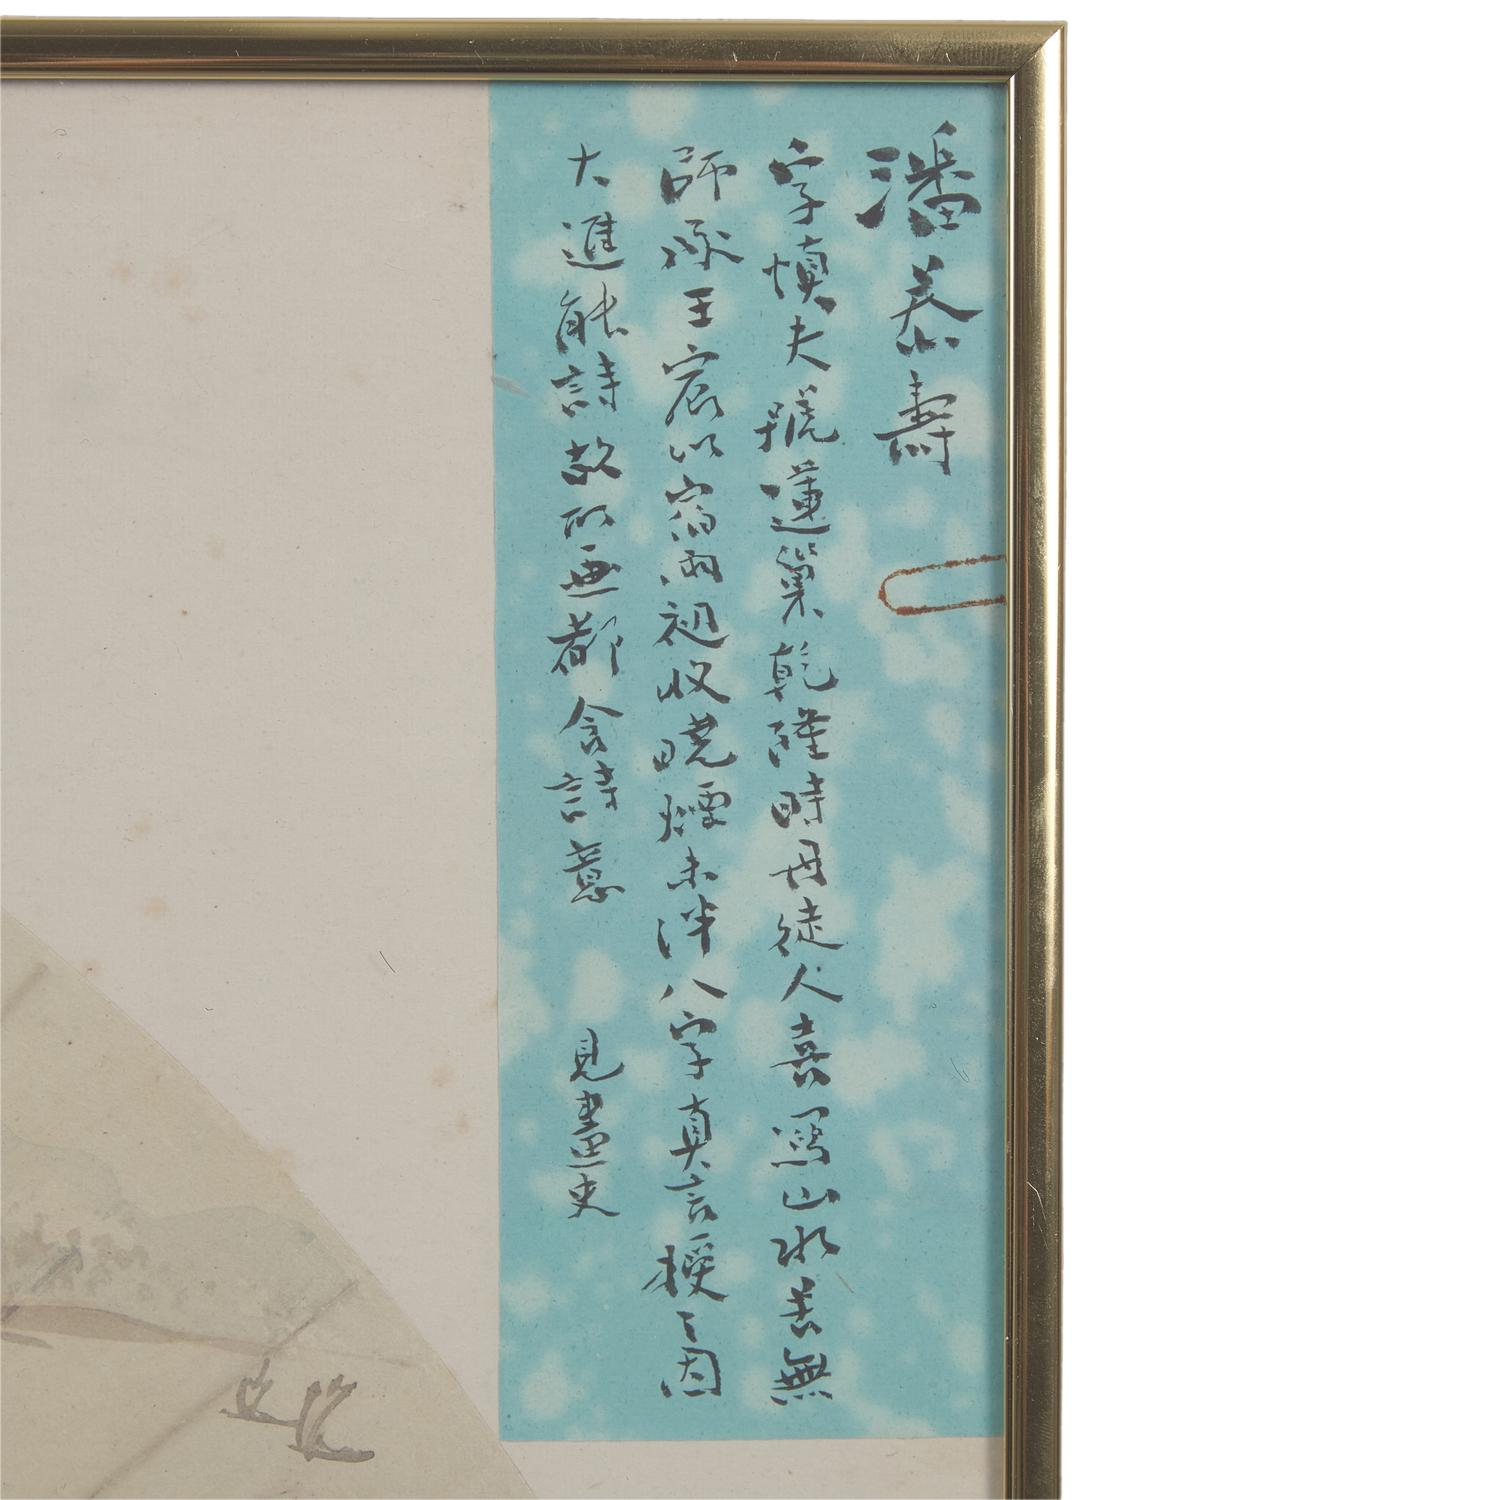 潘恭壽
字慎夫號蓮巢乾隆時丹徒人喜寫山水苦無
師承王宸以宿雨初收曉煙未泮八字真言授之因
大進能詩故所畫都含詩意 見畫史